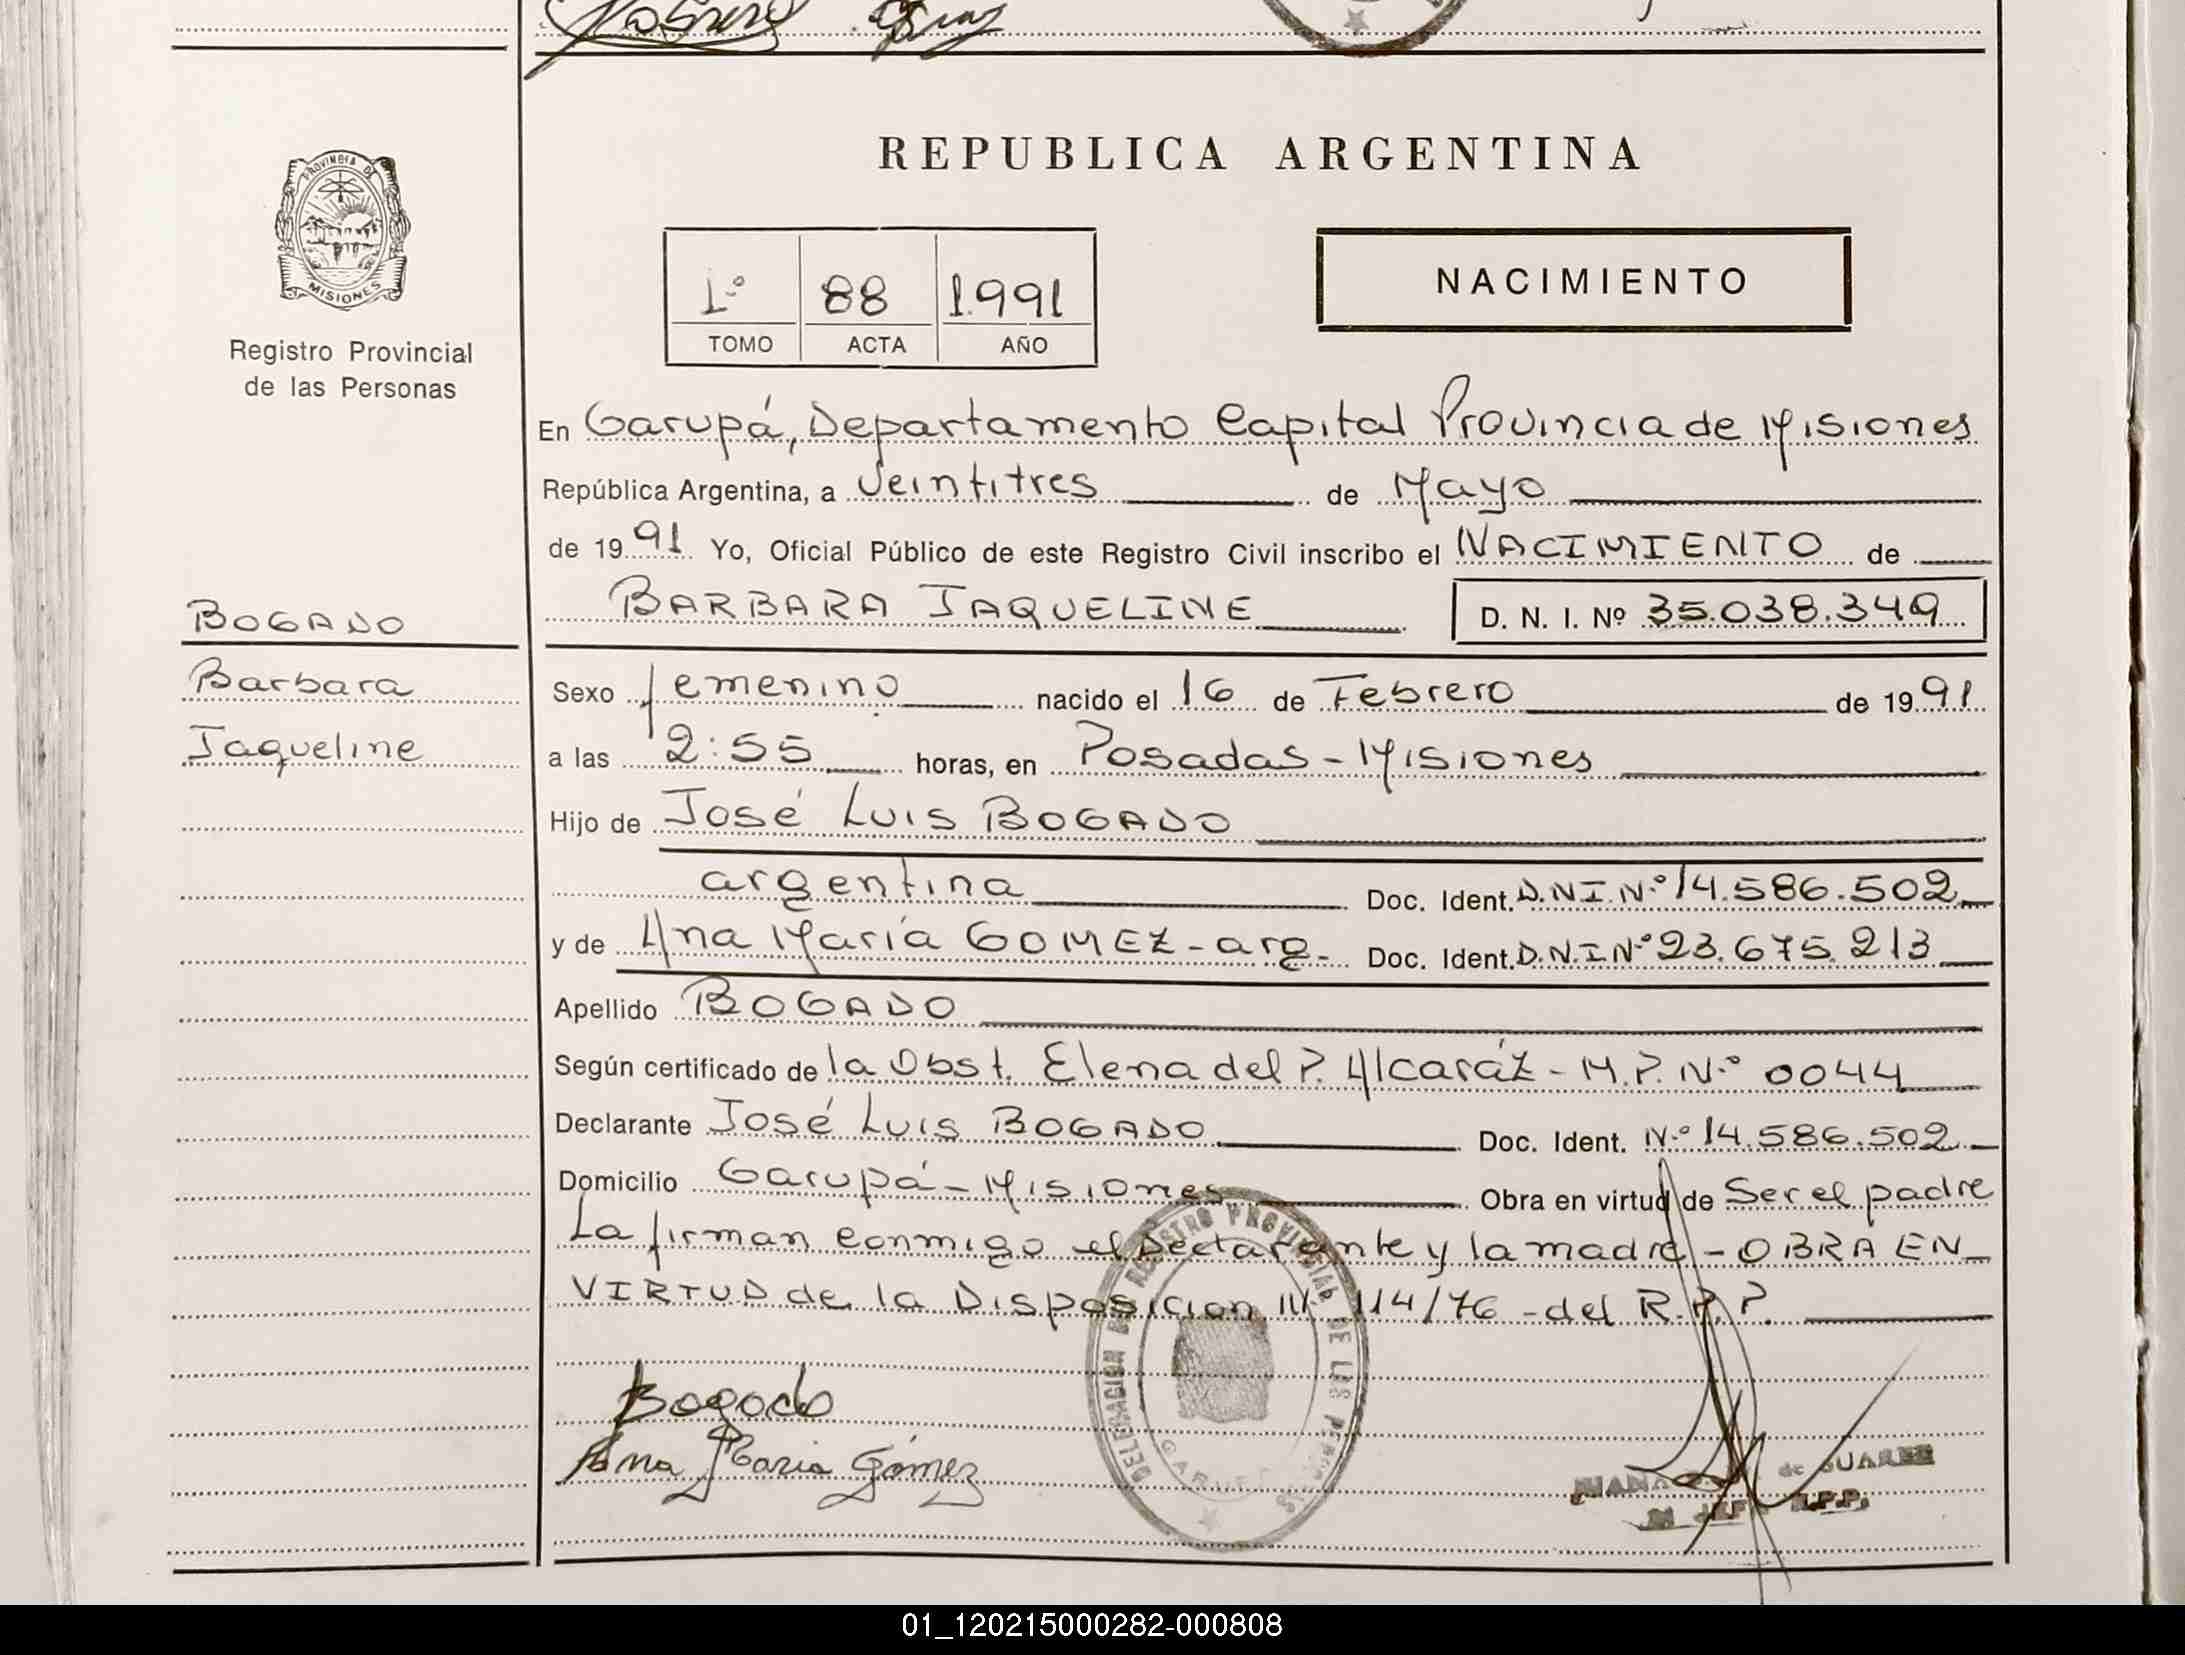 PROVINCIA DE
MISIONES
Registro Provincial
de las Personas
BOGADO
Barbara
Jaqueline
REPUBLICA ARGENTINA
1º 88 1.991
TOMO ACTA AÑO
NACIMIENTO
En Garupá, Departamento Capital Provincia de Misiones
República Argentina, a Veintitres de Mayo
de 1991 Yo, Oficial Público de este Registro Civil inscribo el NACIMIENTO de
BARBARA JAQUELINE D. N. I. Nº 35.038.349
Sexo femenino nacido el 16 de Febrero de 1991
a las 2:55 horas, en Posadas - Misiones
Hijo de José Luis BOGADO
argentina Doc. Ident. D.N.I.N.º 14.586.502
y de Ana María GOMEZ - arg. Doc. Ident. D.N.I Nº 23.675.213
Apellido BOGADO
Según certificado de la Obst. Elena del P. Alcaráz - M.P. N.º 0044
Declarante José Luis BOGADO Doc. Ident. N.º 14.586.502
Domicilio Garupá - Misiones Obra en virtud de Ser el padre
La firman conmigo el Declarante y la madre - OBRA EN
VIRTUD de la Disposicion Nº 114/76 - del R.P.P.
Bogado
Ana Maria Gómez
DELEGACION DEL REGISTRO PROVINCIAL DE LAS PERSONAS
GARUPA
JUANA de SUAREZ
JEFE R.P.P.
01_120215000282-000808